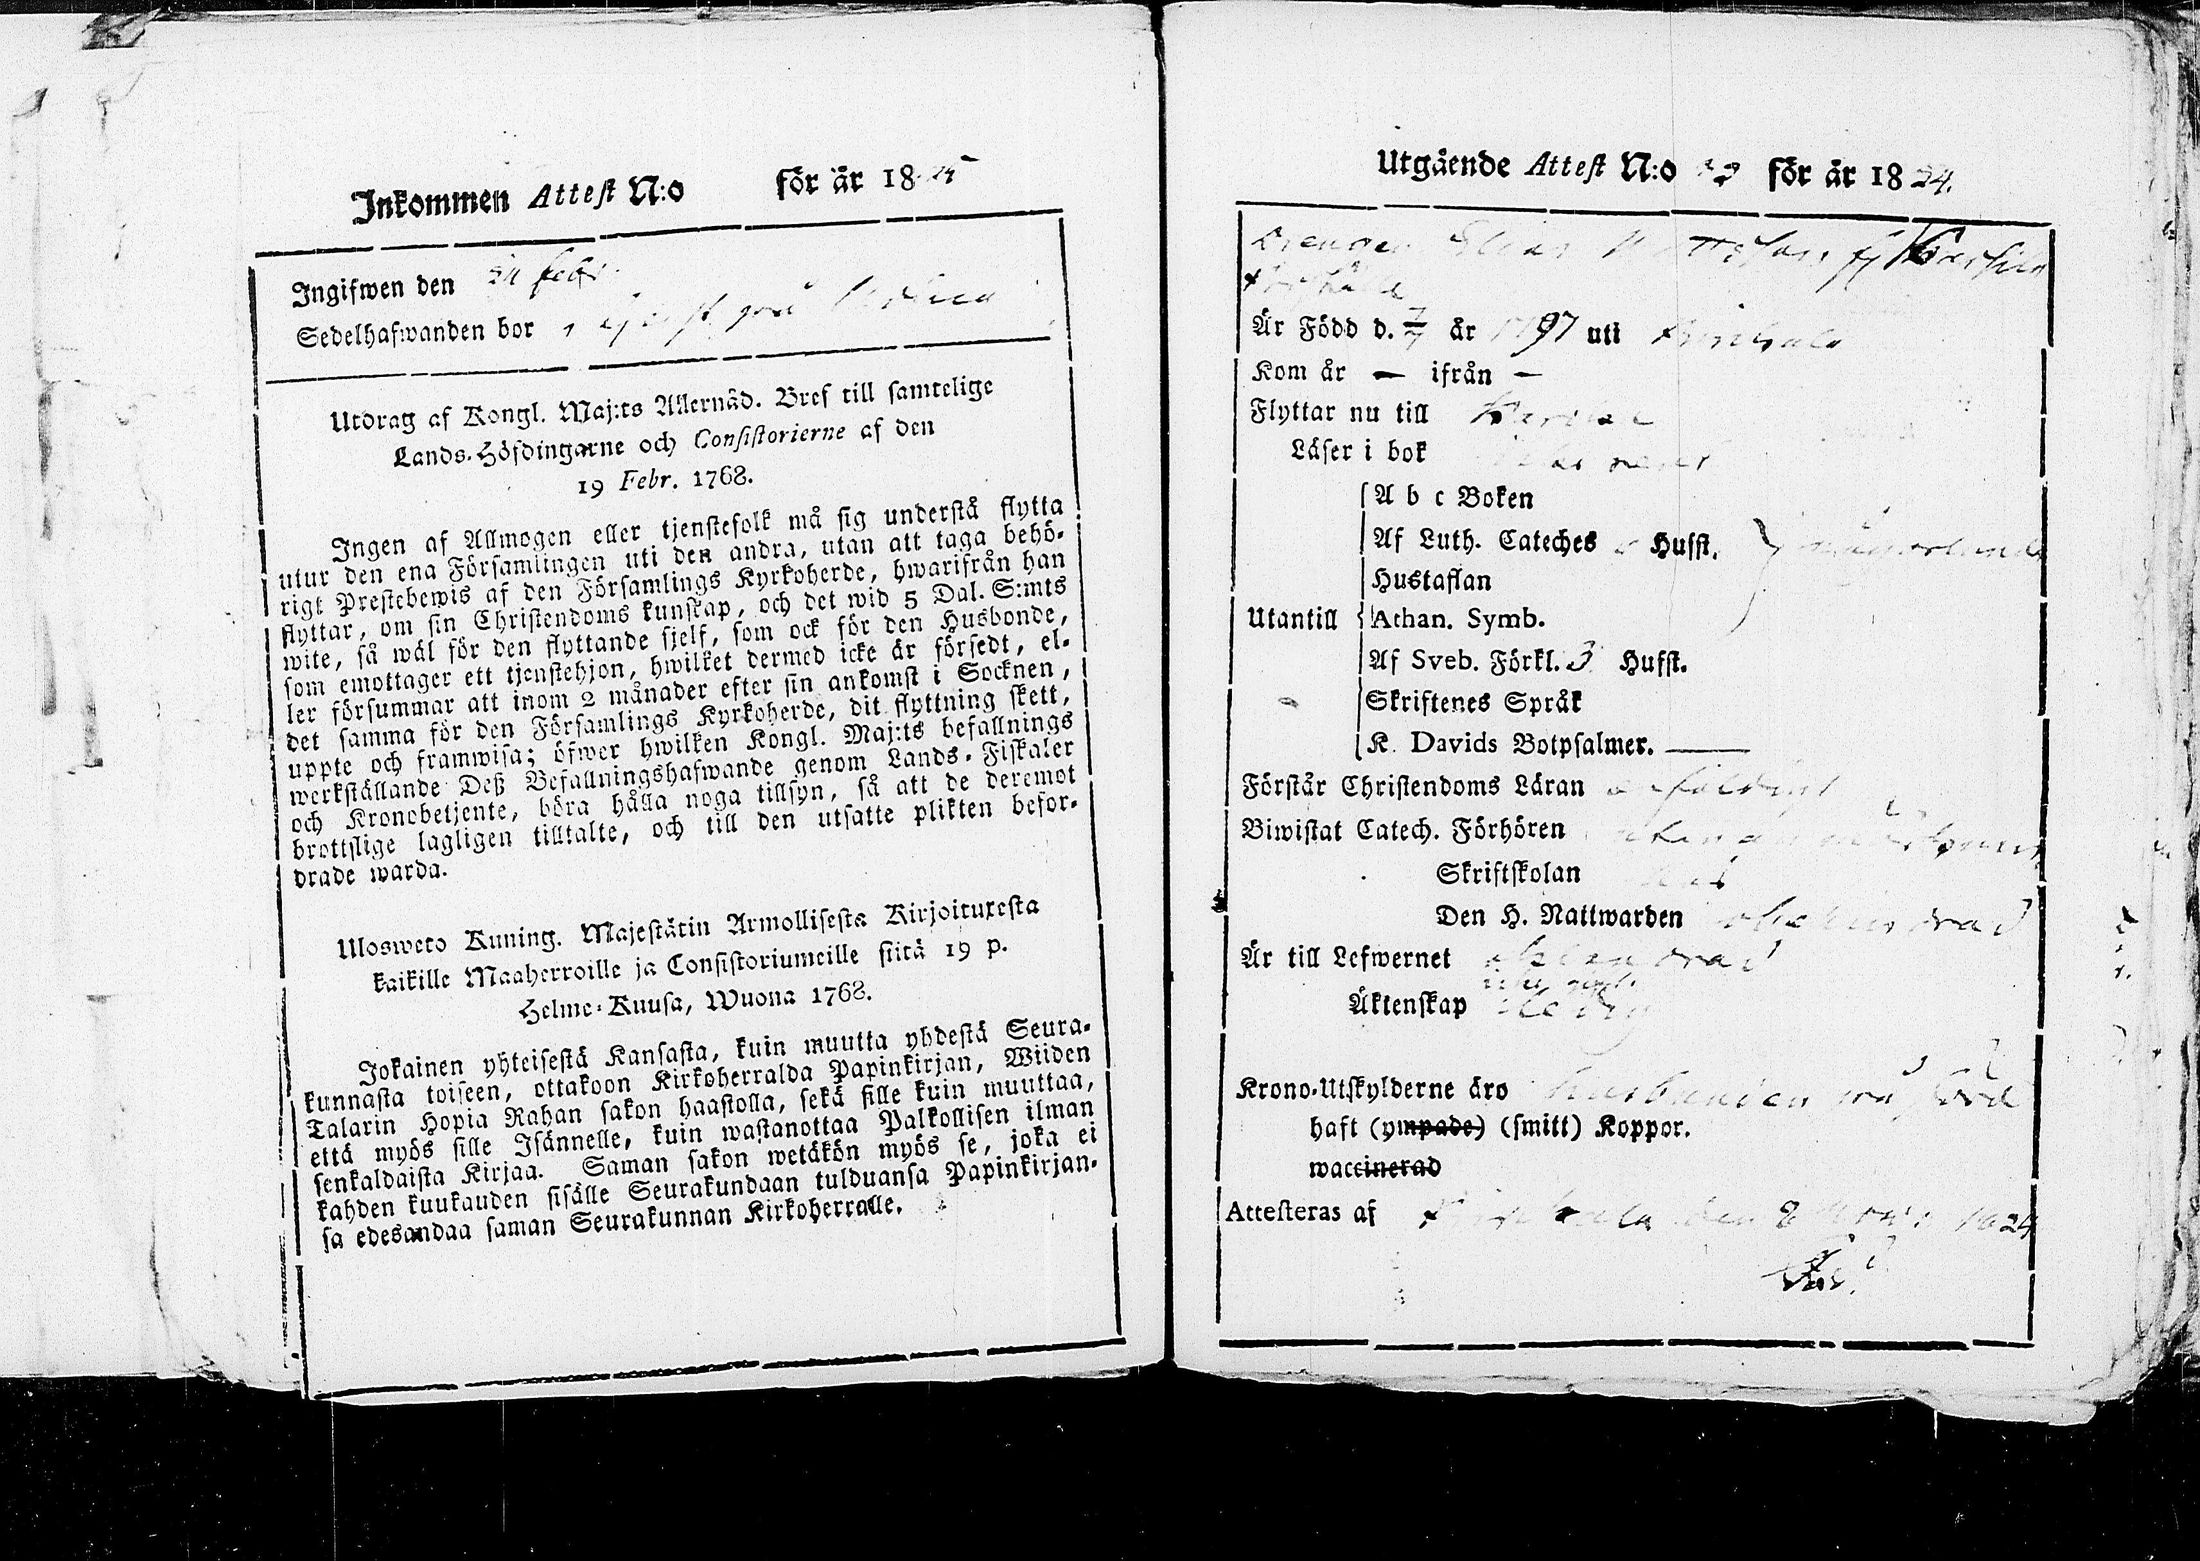 Inkommen Attest N:o för år 18 25
Ingifwen den 24 febr.
Sedelhafwanden bor
Utdrag af Kongl. Maj:ts Allernåd. Bref till samtelige
Lands-Höfdingarne och Consistorierne af den
19 Febr. 1768.
Ingen af Allmogen eller tjenstefolk må sig understå flytta
utur den ena Församlingen uti den andra, utan att taga behö-
rigt Prestebewis af den Församlings Kyrkoherde, hwarifrån han
flyttar, om sin Christendoms kunskap, och det wid 5 Dal. S:mts
wite, så wäl för den flyttande sjelf, som ock för den Husbonde,
som emottager ett tjenstehjon, hwilket dermed icke är försedt, el-
ler försummar att inom 2 månader efter sin ankomst i Socknen,
det samma för den Församlings Kyrkoherde, dit flyttning skett,
uppte och framwisa; öfwer hwilken Kongl. Maj:ts befallnings
werkställande Deß Befallningshafwande genom Lands-Fiskaler
och Kronobetjente, böra hålla noga tillsyn, så att de deremot
brottslige lagligen tilltalte, och till den utsatte plikten befor-
drade warda.
Ulosweto Kuning. Majestätin Armollisesta Kirjoituxesta
kaikille Maaherroille ja Consistoriumeille siitä 19 p.
Helme-Kuusa, Wuona 1768.
Jokainen yhteisestä Kansasta, kuin muutta yhdestä Seura-
kunnasta toiseen, ottakoon Kirkoherralda Papinkirjan, Wiiden
Talarin Hopia Rahan sakon haastolla, sekä sille kuin muuttaa,
että myös sille Isännelle, kuin wastanottaa Palkollisen ilman
senkaldaista Kirjaa. Saman sakon wetäkön myös se, joka ei
kahden kuukauden sisälle Seurakundaan tulduansa Papinkirjan-
sa edesandaa saman Seurakunnan Kirkoherralle.
Utgående Attest N:o för år 18 24.
Drengen Elias Mattsson
Är Född d. 7/7 år 1797 uti
Kom år — ifrån —
Flyttar nu till
Läser i bok
A b c Boken
Af Luth. Cateches Husst.
Hustaflan
Utantill Athan. Symb.
Af Sveb. Förkl. 3 Husst.
Skriftenes Språk
K. Davids Botpsalmer. —
Förstår Christendoms Läran enfaldigt
Biwistat Catech. Förhören
Skriftskolan
Den H. Nattwarden oklandrad
Är till Lefwernet oklandrad
Äktenskap ledig
Krono-Utskylderne äro husbonden
haft (ympade) (smitt) Koppor.
waccinerad
Attesteras af den 2 1824